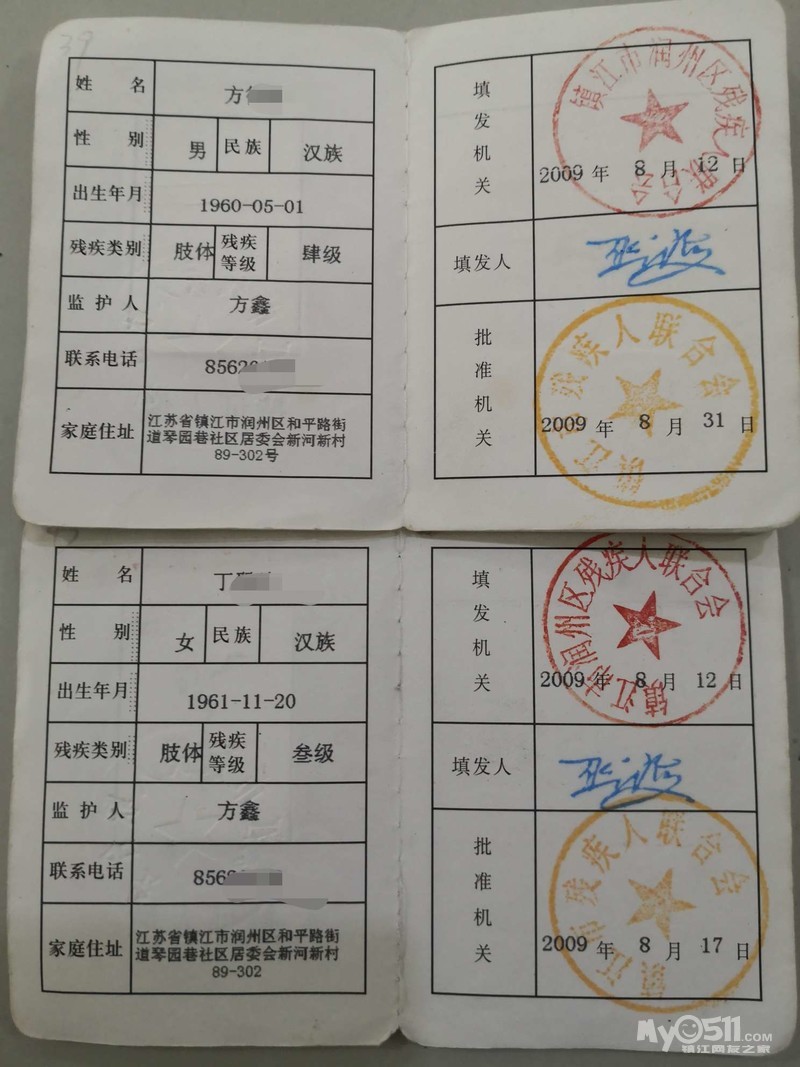 39
姓名 方
性别 男 民族 汉族
出生年月 1960-05-01
残疾类别 肢体 残疾等级 肆级
监护人 方鑫
联系电话 8562
家庭住址 江苏省镇江市润州区和平路街
道琴园巷社区居委会新河新村
89-302号
填发机关 2009年 8月 12日
镇江市润州区残疾人联合会
填发人
批准机关 2009年 8月 31日
镇江市残疾人联合会
姓名 丁
性别 女 民族 汉族
出生年月 1961-11-20
残疾类别 肢体 残疾等级 叁级
监护人 方鑫
联系电话 856
家庭住址 江苏省镇江市润州区和平路街
道琴园巷社区居委会新河新村
89-302
填发机关 2009年 8月 12日
镇江市润州区残疾人联合会
填发人
批准机关 2009年 8月 17日
镇江市残疾人联合会
My0511.COM
镇江网友之家